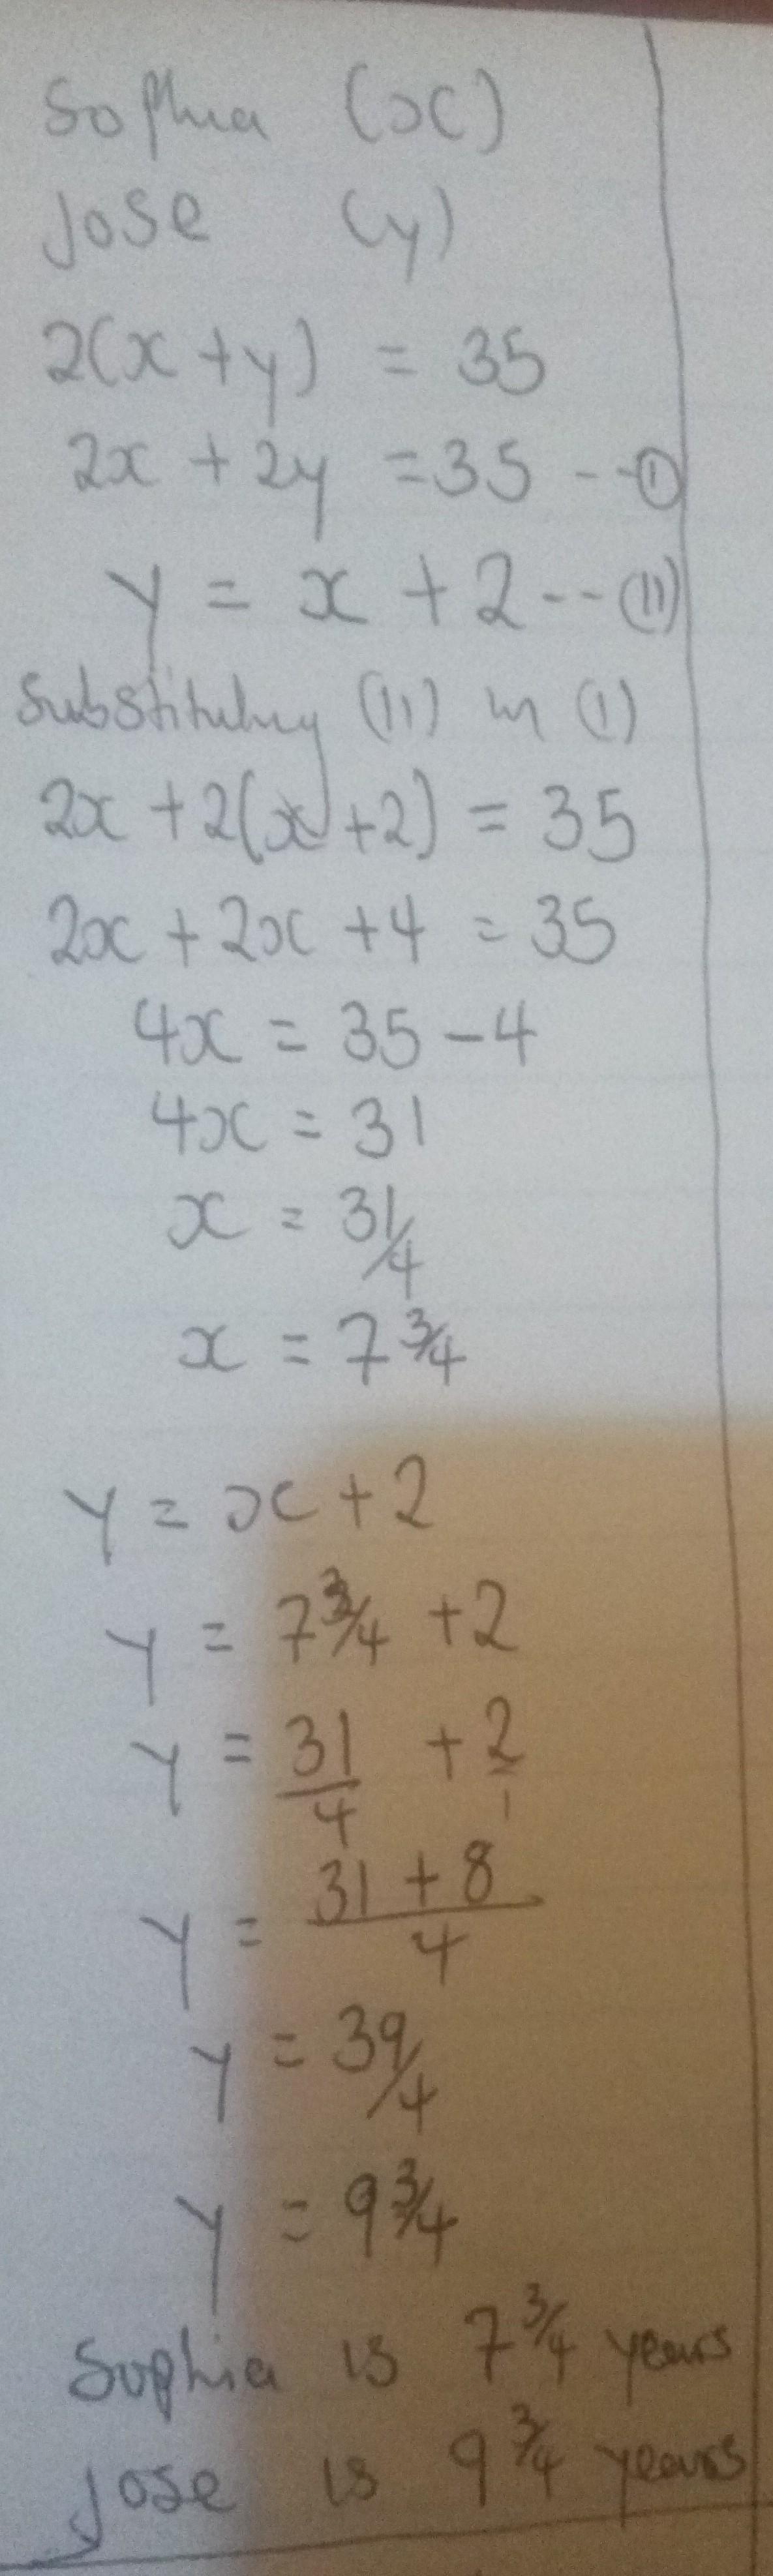 Sophia (x)
Jose (y)
2(x + y) = 35
2x + 2y = 35 --①
y = x + 2 -- (11)
Substituting (11) in (1)
2x + 2(x + 2) = 35
2x + 2x + 4 = 35
4x = 35 - 4
4x = 31
x = 31/4
x = 7 3/4
y = x + 2
y = 7 3/4 + 2
y = 31/4 + 2/1
y = (31 + 8)/4
y = 39/4
y = 9 3/4
Sophia is 7 3/4 years
Jose is 9 3/4 years